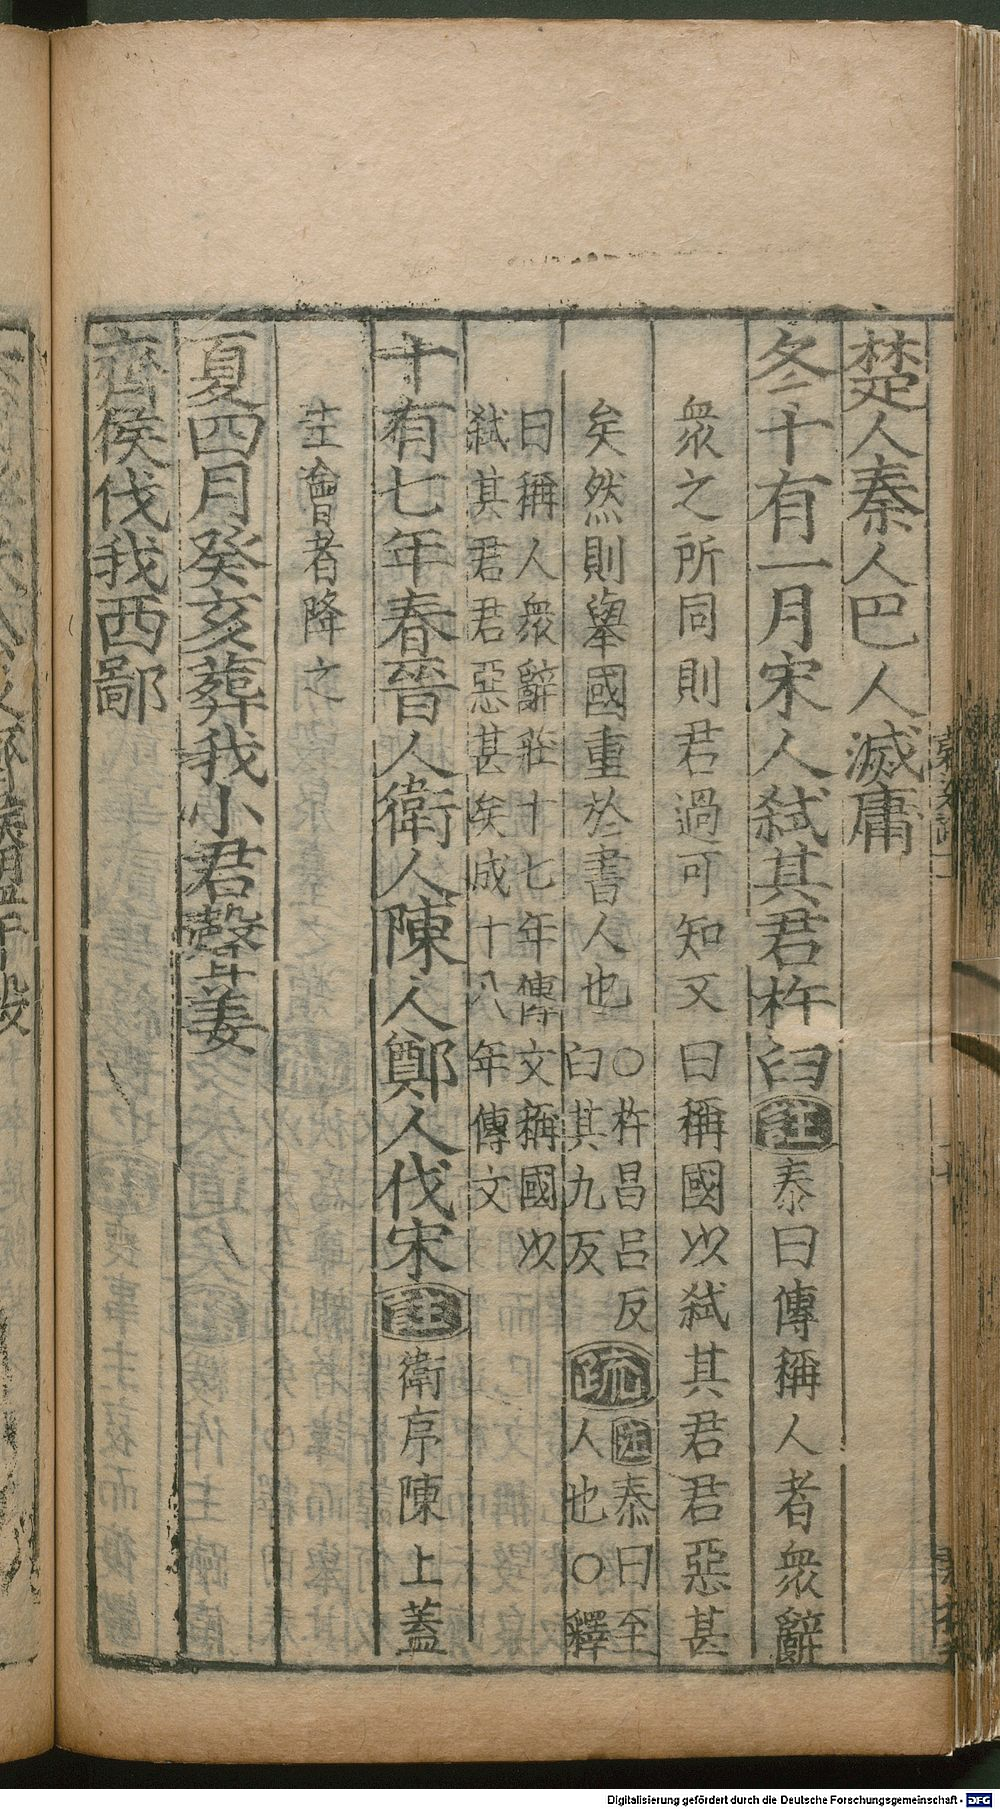 楚人秦人巴人滅庸
冬十有一月宋人弑其君杵臼註泰曰傳稱人者衆辭
衆之所同則君過可知又曰稱國以弑其君君惡甚
矣然則舉國重於書人也〇杵昌呂反臼其九反疏註泰曰至人也〇釋
曰稱人衆辭莊十七年傳文稱國以弑其君君惡甚矣成十八年傳文
十有七年春晉人衛人陳人鄭人伐宋註衛序陳上蓋
主會者降之
夏四月癸亥葬我小君聲姜
齊侯伐我西鄙
Digitalisierung gefördert durch die Deutsche Forschungsgemeinschaft - DFG